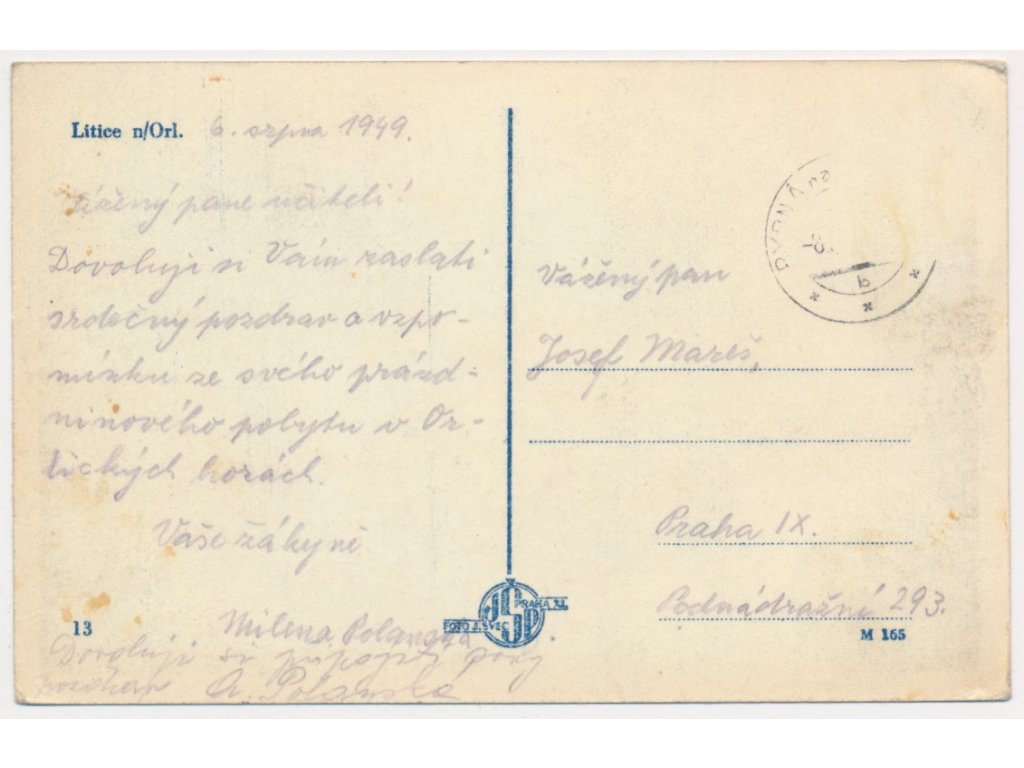 Litice n/Orl. 6. srpna 1949.
ážený pane učiteli!
Dovoluji si Vám zaslati
srdečný pozdrav a vzpo-
mínku ze svého prázd-
ninového pobytu v Or-
lických horách.
Vaše žákyně
Milena Polanská
Dovoluji si připojit svůj
pozdrav A. Polanská
13
FOTO J. ŠVEC PRAHA
JŠP
b
Vážený pan
Josef Mareš,
Praha IX.
Podnádražní 293.
M 165